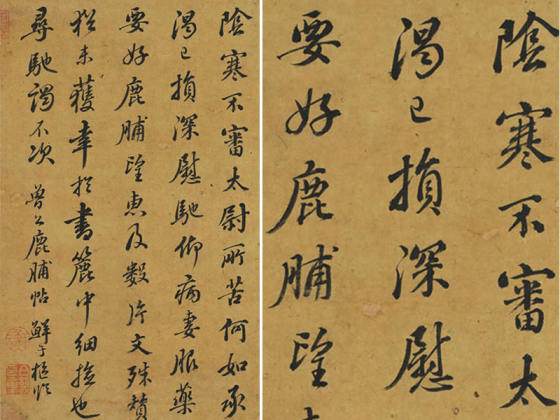 陰寒不審太尉所苦何如承
渴已損深慰馳仰病妻服藥
要好鹿脯望惠及數片文殊贊
猶未獲幸於書簏中細撿也
尋馳謁不次
魯公鹿脯帖 鮮于樞臨
陰寒不審太
渴已損深慰
要好鹿脯望